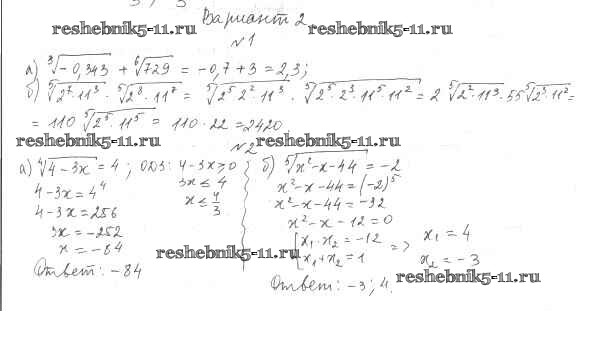 Вариант 2
reshebnik5-11.ru reshebnik5-11.ru
№1
а) ∛-0,343 + ⁶√729 = -0,7 + 3 = 2,3;
б) ⁵√2⁷·11³ · ⁵√2⁸·11⁷ = ⁵√2⁵·2²·11³ · ⁵√2⁵·2³·11⁵·11² = 2 ⁵√2²·11³ · 55 ⁵√2³·11² =
= 110 ⁵√2⁵·11⁵ = 110·22 = 2420
reshebnik5-11.ru reshebnik5-11.ru
№2
а) ⁴√4-3x = 4; ОДЗ: 4-3x ≥ 0
3x ≤ 4
x ≤ 4/3
4-3x = 4⁴
4-3x = 256
3x = -252
x = -84
Ответ: -84
б) ⁵√x²-x-44 = -2
x²-x-44 = (-2)⁵
x²-x-44 = -32
x²-x-12 = 0
x₁·x₂ = -12
x₁+x₂ = 1
=> x₁ = 4
x₂ = -3
reshebnik5-11.ru
reshebnik5-11.ru
Ответ: -3; 4.